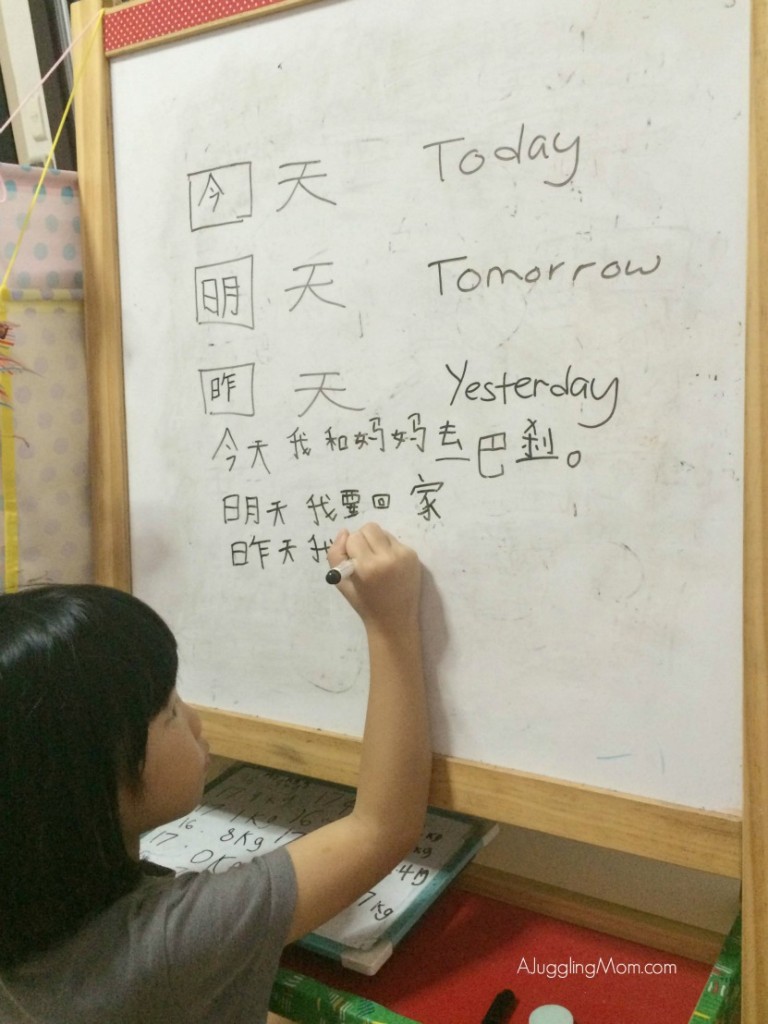 今天 Today
明天 Tomorrow
昨天 Yesterday
今天我和妈妈去巴刹。
明天我要回家
昨天我
17
16
17
8Kg 17
0Kg
4
7Kg
AJugglingMom.com